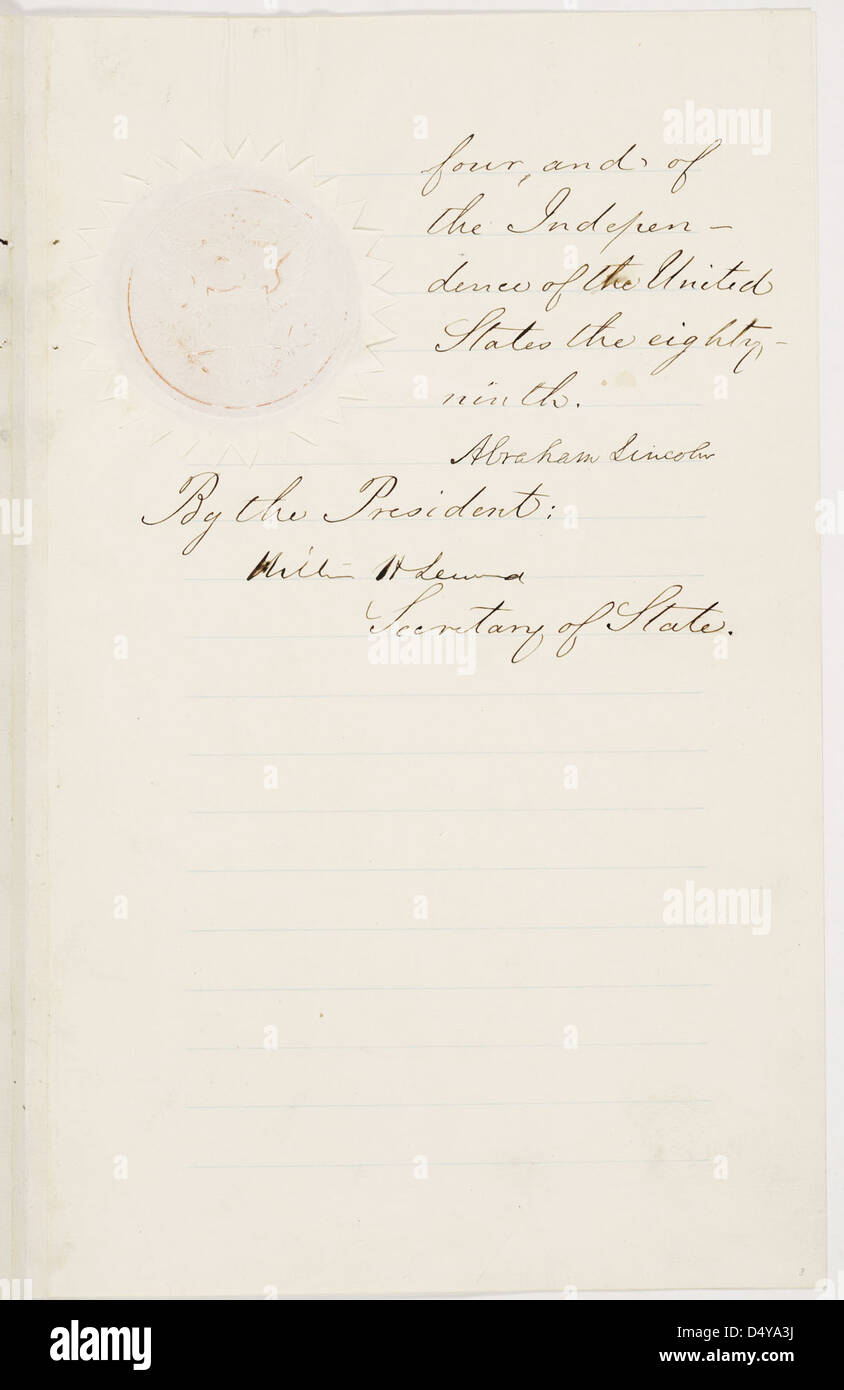 four, and of
the Indepen-
dence of the United
States the eighty-
ninth.
Abraham Lincoln
By the President:
William H Seward
Secretary of State.
3
alamy
Image ID: D4YA3J
www.alamy.com